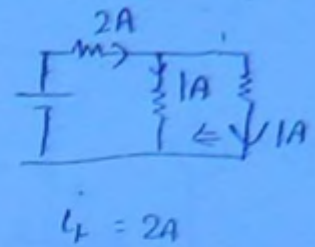 2A
1A
1A
i_t = 2A